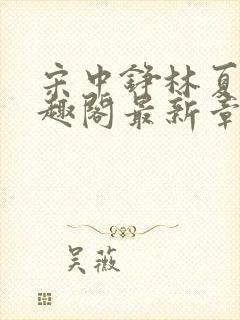 宋中铮林夏
趣阁最新章
吴薇